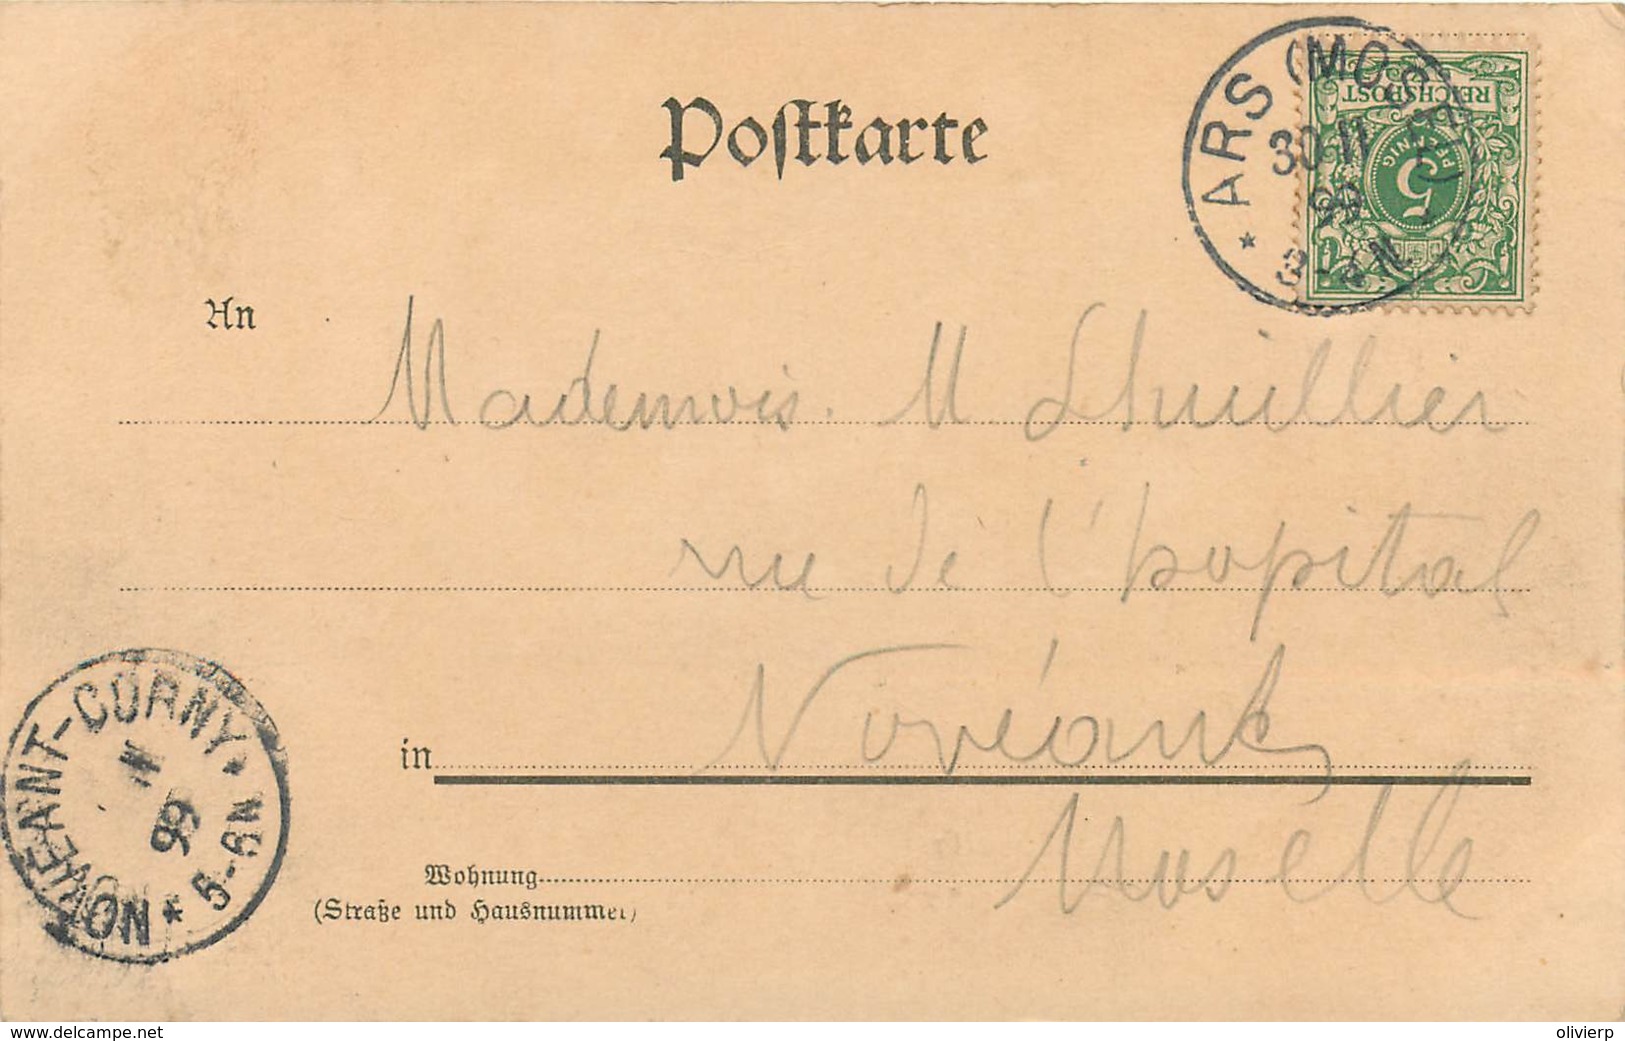 Postkarte
ARS (MOSEL)
30 11
99
3-4N
REICHSPOST
5
PFENNIG
An
Mademois. M Lhuillier
rue de l'hopital
in Novéant
Moselle
Wohnung
(Straße und Hausnummer)
NOVEANT-CORNY
11
99
5-6N
www.delcampe.net
olivierp